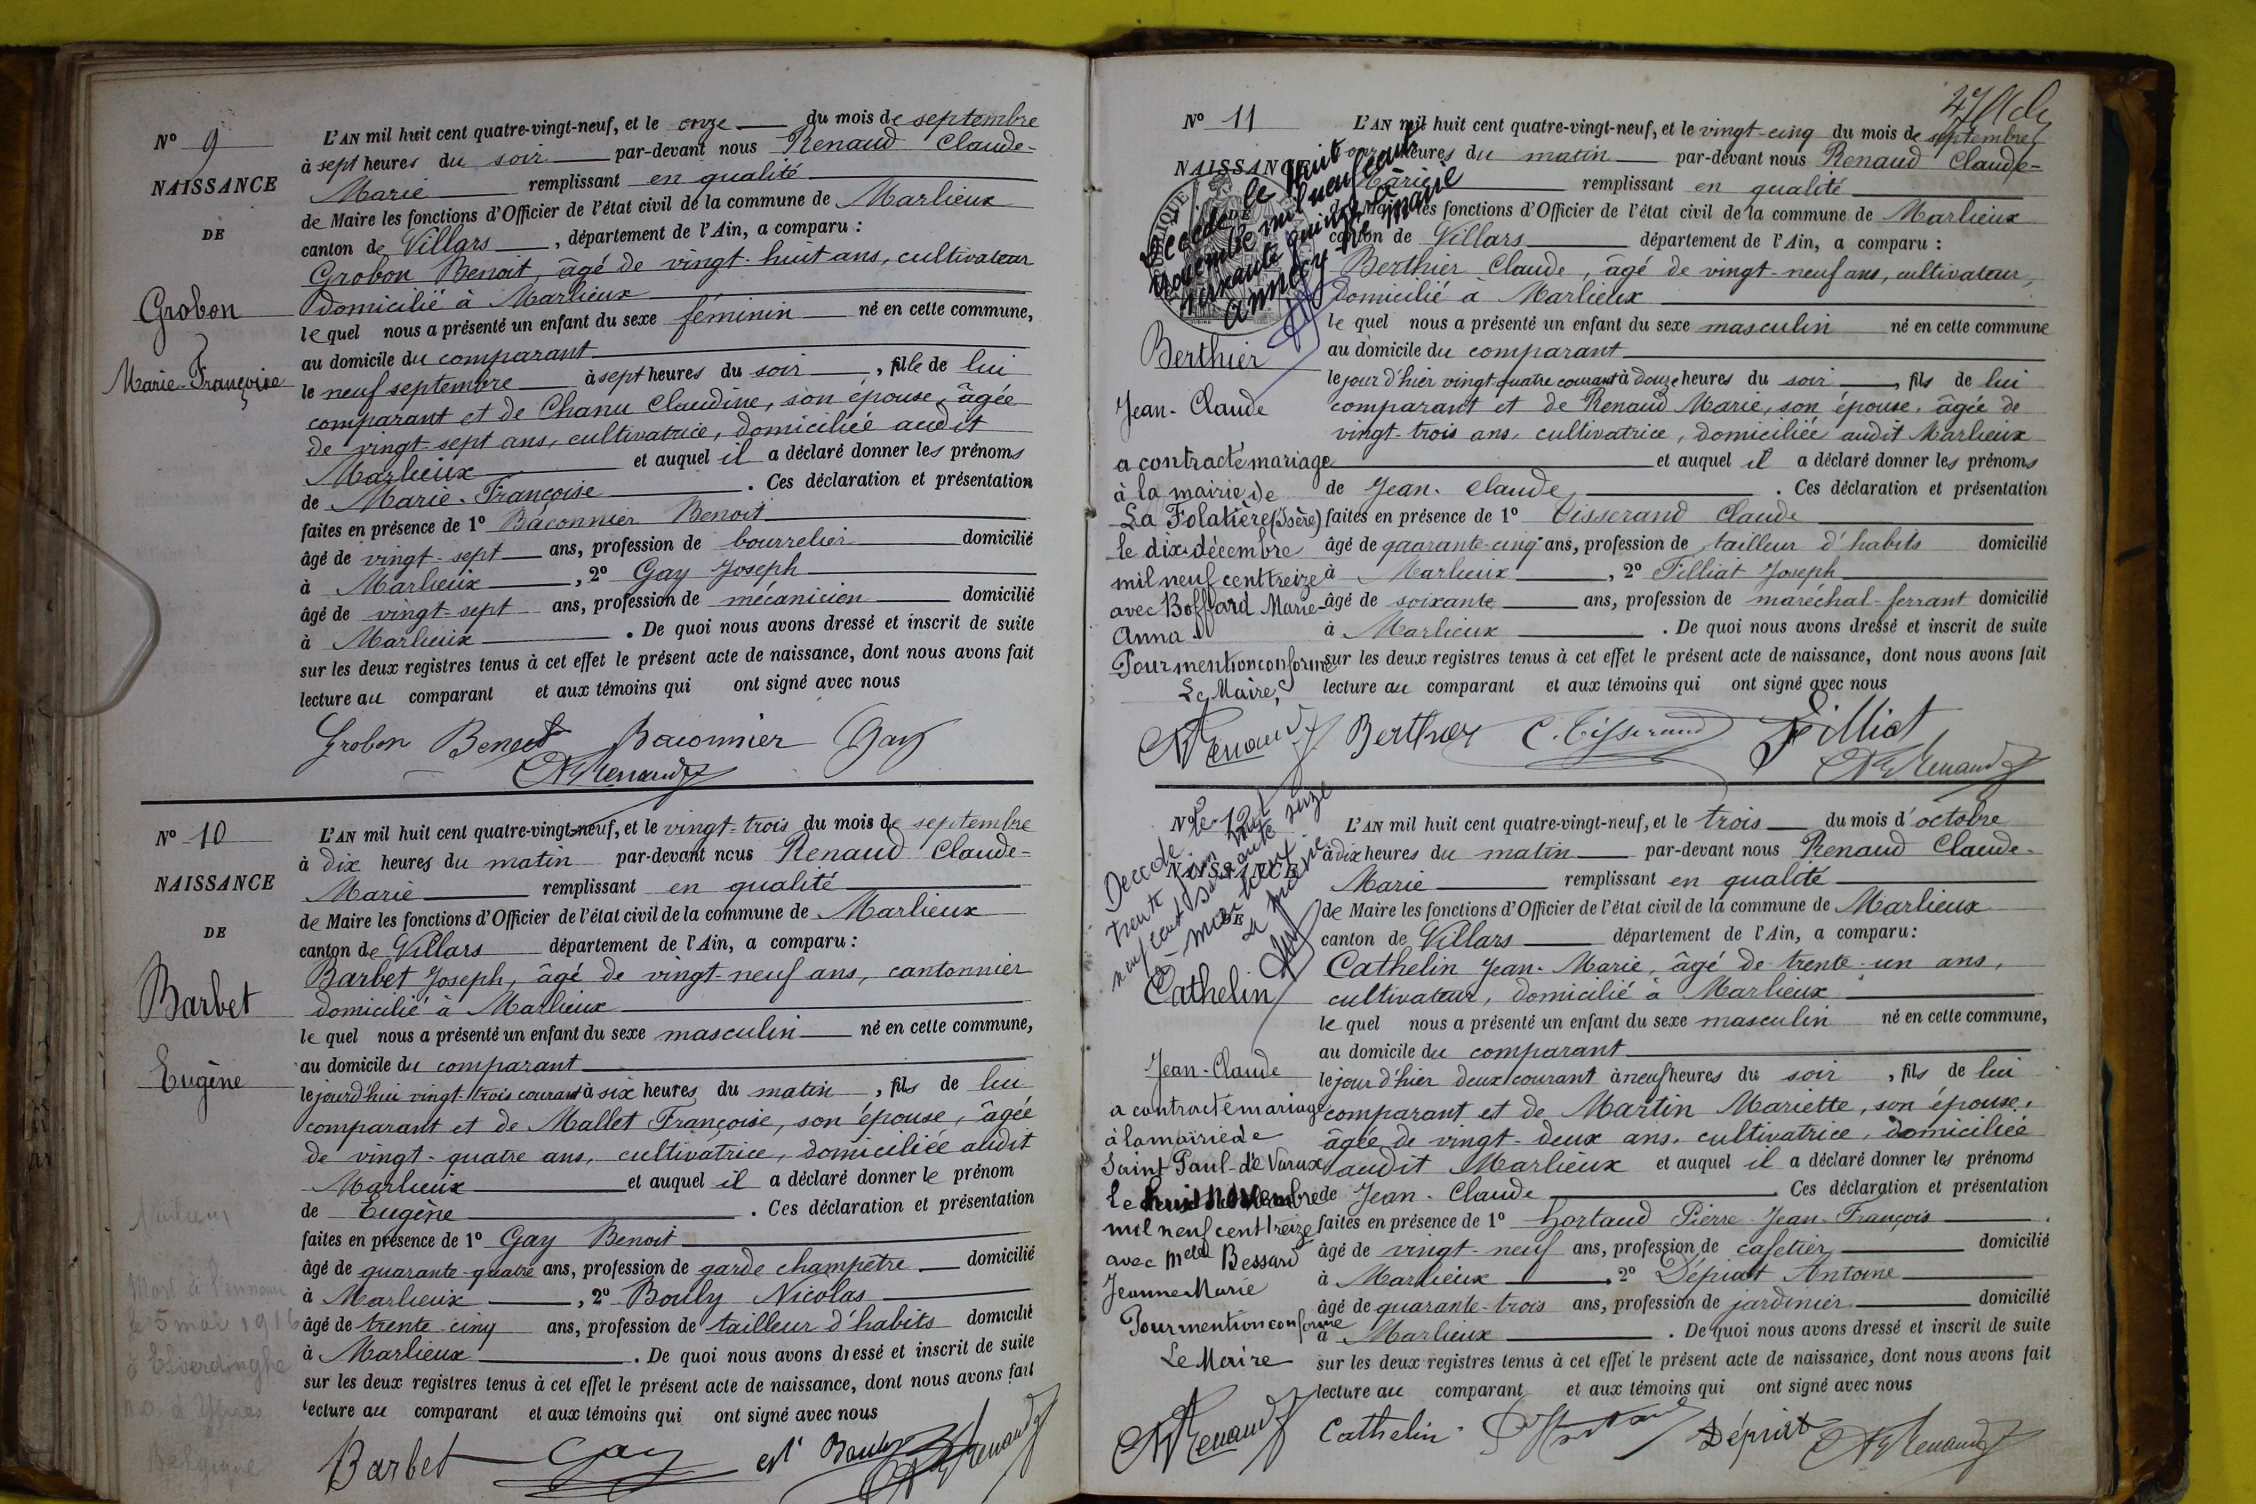 N° 9
NAISSANCE
DE
Grobon
Marie-Françoise
L'AN mil huit cent quatre-vingt-neuf, et le onze du mois de septembre
à sept heures du soir par-devant nous Renaud Claude-
Marie remplissant en qualité
de Maire les fonctions d'Officier de l'état civil de la commune de Marlieux
canton de Villars, département de l'Ain, a comparu :
Grobon Benoit, âgé de vingt-huit ans, cultivateur
domicilié à Marlieux
lequel nous a présenté un enfant du sexe féminin né en cette commune,
au domicile du comparant
le neuf septembre à sept heures du soir, fille de lui
comparant et de Chanu Claudine, son épouse, âgée
de vingt-sept ans, cultivatrice, domiciliée audit
Marlieux et auquel il a déclaré donner les prénoms
de Marie-Françoise. Ces déclaration et présentation
faites en présence de 1° Baconnier Benoit
âgé de vingt-sept ans, profession de bourrelier domicilié
à Marlieux, 2° Gay Joseph
âgé de vingt-sept ans, profession de mécanicien domicilié
à Marlieux. De quoi nous avons dressé et inscrit de suite
sur les deux registres tenus à cet effet le présent acte de naissance, dont nous avons fait
lecture au comparant et aux témoins qui ont signé avec nous
Grobon Benoit Baconnier Gay
Renaud
N° 10
NAISSANCE
DE
Barbet
Eugène
Mort à l'ennemi
le 5 mai 1916
à Elverdinghe
n.o. d'Ypres
Belgique
L'AN mil huit cent quatre-vingt-neuf, et le vingt-trois du mois de septembre
à dix heures du matin par-devant nous Renaud Claude-
Marie remplissant en qualité
de Maire les fonctions d'Officier de l'état civil de la commune de Marlieux
canton de Villars département de l'Ain, a comparu :
Barbet Joseph, âgé de vingt-neuf ans, cantonnier
domicilié à Marlieux
lequel nous a présenté un enfant du sexe masculin né en cette commune,
au domicile du comparant
le jourd'hui vingt-trois courant à six heures du matin, fils de lui
comparant et de Mallet Françoise, son épouse, âgée
de vingt-quatre ans, cultivatrice, domiciliée audit
Marlieux et auquel il a déclaré donner le prénom
de Eugène. Ces déclaration et présentation
faites en présence de 1° Gay Benoit
âgé de quarante-quatre ans, profession de garde champêtre domicilié
à Marlieux, 2° Bouly Nicolas
âgé de trente-cinq ans, profession de tailleur d'habits domicilié
à Marlieux. De quoi nous avons dressé et inscrit de suite
sur les deux registres tenus à cet effet le présent acte de naissance, dont nous avons fait
lecture au comparant et aux témoins qui ont signé avec nous
Barbet Gay Bouly Renaud
N° 11
NAISSANCE
Décédé le huit
novembre mil neuf cent
soixante quinze à
Annecy
Berthier
Jean-Claude
a contracté mariage
à la mairie de
La Folatière (Isère)
le dix décembre
mil neuf cent treize
avec Boffard Marie-
Anna.
Pour mention conforme
Le Maire,
Renaud
L'AN mil huit cent quatre-vingt-neuf, et le vingt-cinq du mois de septembre
heures du matin par-devant nous Renaud Claude-
Marie remplissant en qualité
de Maire les fonctions d'Officier de l'état civil de la commune de Marlieux
canton de Villars département de l'Ain, a comparu :
Berthier Claude, âgé de vingt-neuf ans, cultivateur,
domicilié à Marlieux
lequel nous a présenté un enfant du sexe masculin né en cette commune
au domicile du comparant
le jour d'hier vingt quatre courant à douze heures du soir, fils de lui
comparant et de Renaud Marie, son épouse, âgée de
vingt-trois ans, cultivatrice, domiciliée audit Marlieux
et auquel il a déclaré donner les prénoms
de Jean-Claude. Ces déclaration et présentation
faites en présence de 1° Tisserand Claude
âgé de quarante-cinq ans, profession de tailleur d'habits domicilié
à Marlieux, 2° Filliat Joseph
âgé de soixante ans, profession de maréchal-ferrant domicilié
à Marlieux. De quoi nous avons dressé et inscrit de suite
sur les deux registres tenus à cet effet le présent acte de naissance, dont nous avons fait
lecture au comparant et aux témoins qui ont signé avec nous
Berthier C. Tisserand Filliat
Renaud
N° 12
NAISSANCE
DE
Décédé le
trente juin mil
neuf cent soixante seize
à Marlieux
Cathelin
Jean-Claude
a contracté mariage
à la mairie de
Saint Paul-de Varax
le huit novembre
mil neuf cent treize
avec Melle Bessard
Jeanne Marie
Pour mention conforme
Le Maire
Renaud
L'AN mil huit cent quatre-vingt-neuf, et le trois du mois d'octobre
à dix heures du matin par-devant nous Renaud Claude-
Marie remplissant en qualité
de Maire les fonctions d'Officier de l'état civil de la commune de Marlieux
canton de Villars département de l'Ain, a comparu :
Cathelin Jean-Marie, âgé de trente-un ans,
cultivateur, domicilié à Marlieux
lequel nous a présenté un enfant du sexe masculin né en cette commune,
au domicile du comparant
le jour d'hier deux courant à neuf heures du soir, fils de lui
comparant et de Martin Mariette, son épouse,
âgée de vingt-deux ans, cultivatrice, domiciliée
audit Marlieux et auquel il a déclaré donner les prénoms
de Jean-Claude Ces déclaration et présentation
faites en présence de 1° Gortaud Pierre-Jean-François
âgé de vingt-neuf ans, profession de cafetier domicilié
à Marlieux, 2° Dépiat Antoine
âgé de quarante-trois ans, profession de jardinier domicilié
à Marlieux. De quoi nous avons dressé et inscrit de suite
sur les deux registres tenus à cet effet le présent acte de naissance, dont nous avons fait
lecture au comparant et aux témoins qui ont signé avec nous
Cathelin Dépiat Renaud